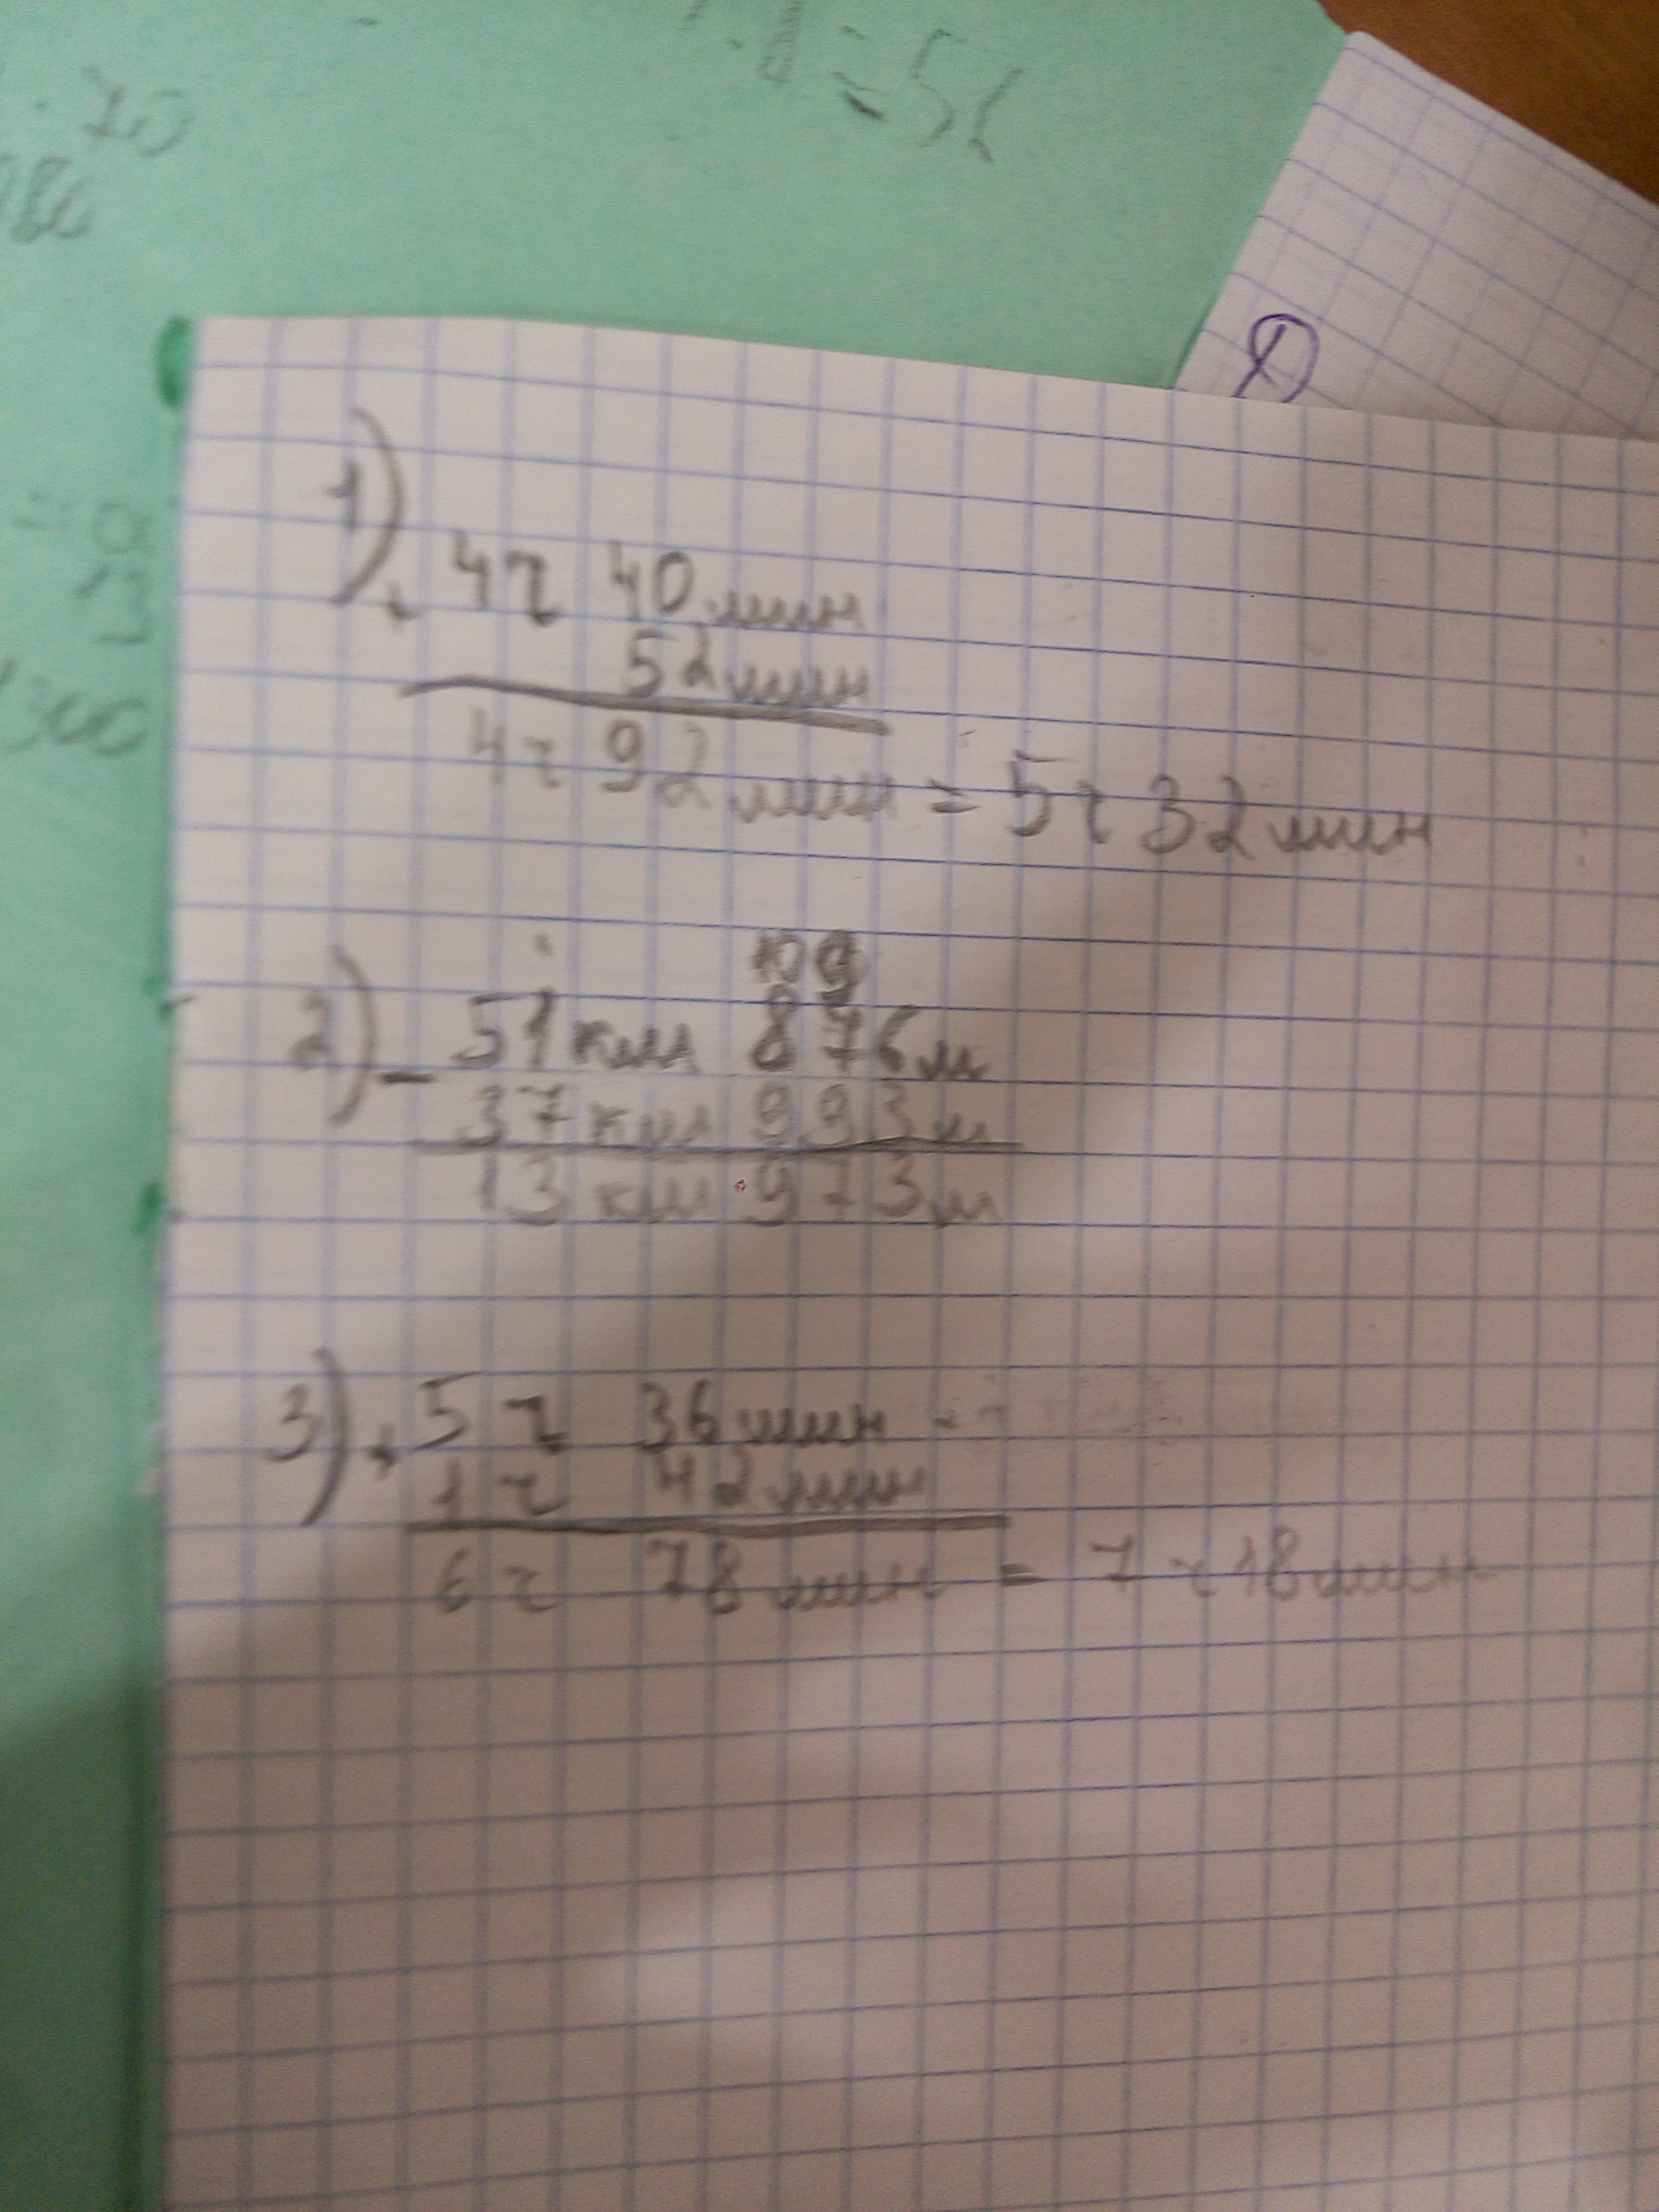 = 5
. 70
980
300
1)
+ 4ч 40 мин
52 мин
4ч 92 мин = 5ч 32 мин
10 9
2) - 51 км 876 м
37 км 993 м
13 км 973 м
3) + 5 ч 36 мин
1 ч 42 мин
6 ч 78 мин = 7 ч 18 мин